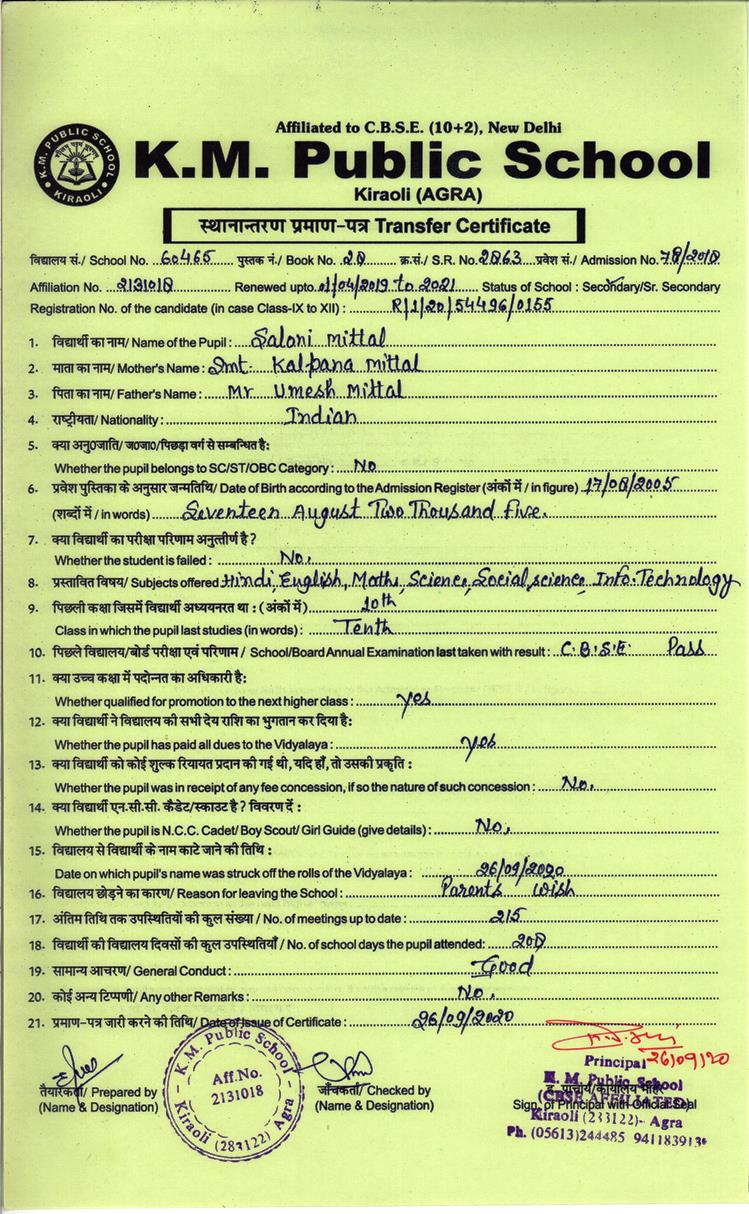 Affiliated to C.B.S.E. (10+2), New Delhi
K.M. PUBLIC SCHOOL
KIRAOLI
K.M. Public School
Kiraoli (AGRA)
स्थानान्तरण प्रमाण-पत्र Transfer Certificate
विद्यालय सं./ School No. 60465 पुस्तक नं./ Book No. 28 क्र.सं./ S.R. No. 2863 प्रवेश सं./ Admission No. 78/2018
Affiliation No. 2131018 Renewed upto 01/04/2019 to 2021 Status of School : Secondary/Sr. Secondary
Registration No. of the candidate (in case Class-IX to XII) : R/1/20/54496/0155
1. विद्यार्थी का नाम/ Name of the Pupil : Saloni Mittal
2. माता का नाम/ Mother's Name : Smt. Kalpana Mittal
3. पिता का नाम/ Father's Name : Mr Umesh Mittal
4. राष्ट्रीयता/ Nationality : Indian
5. क्या अनु0जाति/ ज0जा0/पिछड़ा वर्ग से सम्बन्धित है:
Whether the pupil belongs to SC/ST/OBC Category : No
6. प्रवेश पुस्तिका के अनुसार जन्मतिथि/ Date of Birth according to the Admission Register (अंकों में / in figure) 17/08/2005
(शब्दों में / in words) Seventeen August Two Thousand Five.
7. क्या विद्यार्थी का परीक्षा परिणाम अनुत्तीर्ण है ?
Whether the student is failed : No.
8. प्रस्तावित विषय/ Subjects offered Hindi, English, Maths, Science, Social science, Info. Technology
9. पिछली कक्षा जिसमें विद्यार्थी अध्ययनरत था : (अंकों में) 10th
Class in which the pupil last studies (in words) : Tenth
10. पिछले विद्यालय/बोर्ड परीक्षा एवं परिणाम / School/Board Annual Examination last taken with result : C.B.S.E. Pass
11. क्या उच्च कक्षा में पदोन्नत का अधिकारी है:
Whether qualified for promotion to the next higher class : yes
12. क्या विद्यार्थी ने विद्यालय की सभी देय राशि का भुगतान कर दिया है:
Whether the pupil has paid all dues to the Vidyalaya : yes
13. क्या विद्यार्थी को कोई शुल्क रियायत प्रदान की गई थी, यदि हाँ, तो उसकी प्रकृति :
Whether the pupil was in receipt of any fee concession, if so the nature of such concession : No.
14. क्या विद्यार्थी एन.सी.सी. कैडेट/स्काउट है ? विवरण दें :
Whether the pupil is N.C.C. Cadet/ Boy Scout/ Girl Guide (give details) : No.
15. विद्यालय से विद्यार्थी के नाम काटे जाने की तिथि :
Date on which pupil's name was struck off the rolls of the Vidyalaya : 26/09/2020
16. विद्यालय छोड़ने का कारण/ Reason for leaving the School : Parents wish
17. अंतिम तिथि तक उपस्थितियों की कुल संख्या/ No. of meetings up to date : 215
18. विद्यार्थी की विद्यालय दिवसों की कुल उपस्थितियाँ/ No. of school days the pupil attended: 208
19. सामान्य आचरण/ General Conduct : Good
20. कोई अन्य टिप्पणी/ Any other Remarks : No.
21. प्रमाण-पत्र जारी करने की तिथि/ Date of Issue of Certificate : 26/09/2020
K.M. Public School
Aff.No.
2131018
Kiraoli (283122) Agra
तैयारकर्ता/ Prepared by
(Name & Designation)
जाँचकर्ता/ Checked by
(Name & Designation)
Principal 26/09/20
ह. प्राचार्य/कार्यालय मोहर
Sign. of Principal with Official Seal
K. M. Public School
(CBSE AFFILIATED)
Kiraoli (283122)- Agra
Ph. (05613)244485